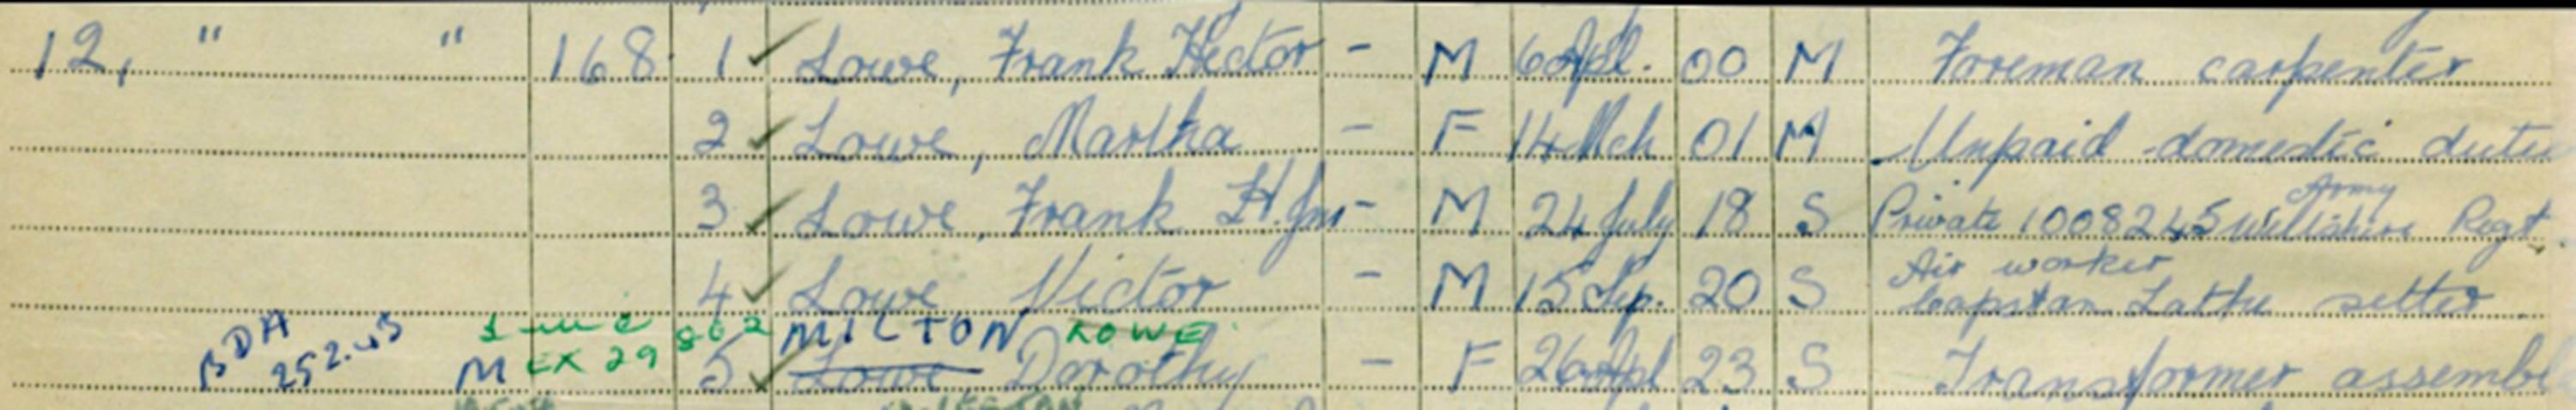 12, " " 168. 1 ✓ Lowe, Frank Hector - M 6 Apl. 00 M Foreman carpenter
2 ✓ Lowe, Martha - F 14 Mch 01 M Unpaid domestic dutie
3 ✓ Lowe, Frank H. Jnr - M 24 July 18 S Private 1008245 Wiltshire Regt. Army
4 ✓ Lowe Victor - M 15 Sep. 20 S Air worker Capstan Lathe setter
BDA 252.43 M EX 29 802 MILTON LOWE
5 ✓ Lowe, Dorothy - F 26 Apl 23 S Transformer assembl